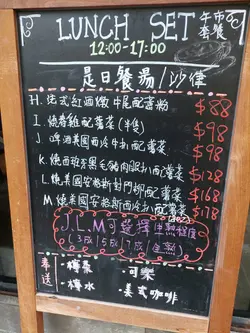 LUNCH SET 午市套餐
12:00-17:00
是日餐湯/沙律
H. 法式紅酒燉牛尾配薯粉 $88
I. 燒春雞配薯菜(半隻) $98
J. 啤酒美國西冷牛扒配薯菜 $98
K. 燒西班牙黑毛豬肉眼扒配薯菜 $128
L. 燒美國安格斯封門柳配薯菜 $168
M 燒美國安格斯西冷扒配薯菜 $178
J. L. M 可選擇生熟程度
(3成/5成/7成/全熟)
奉送
·檸茶 ·可樂
·檸水 ·美式咖啡